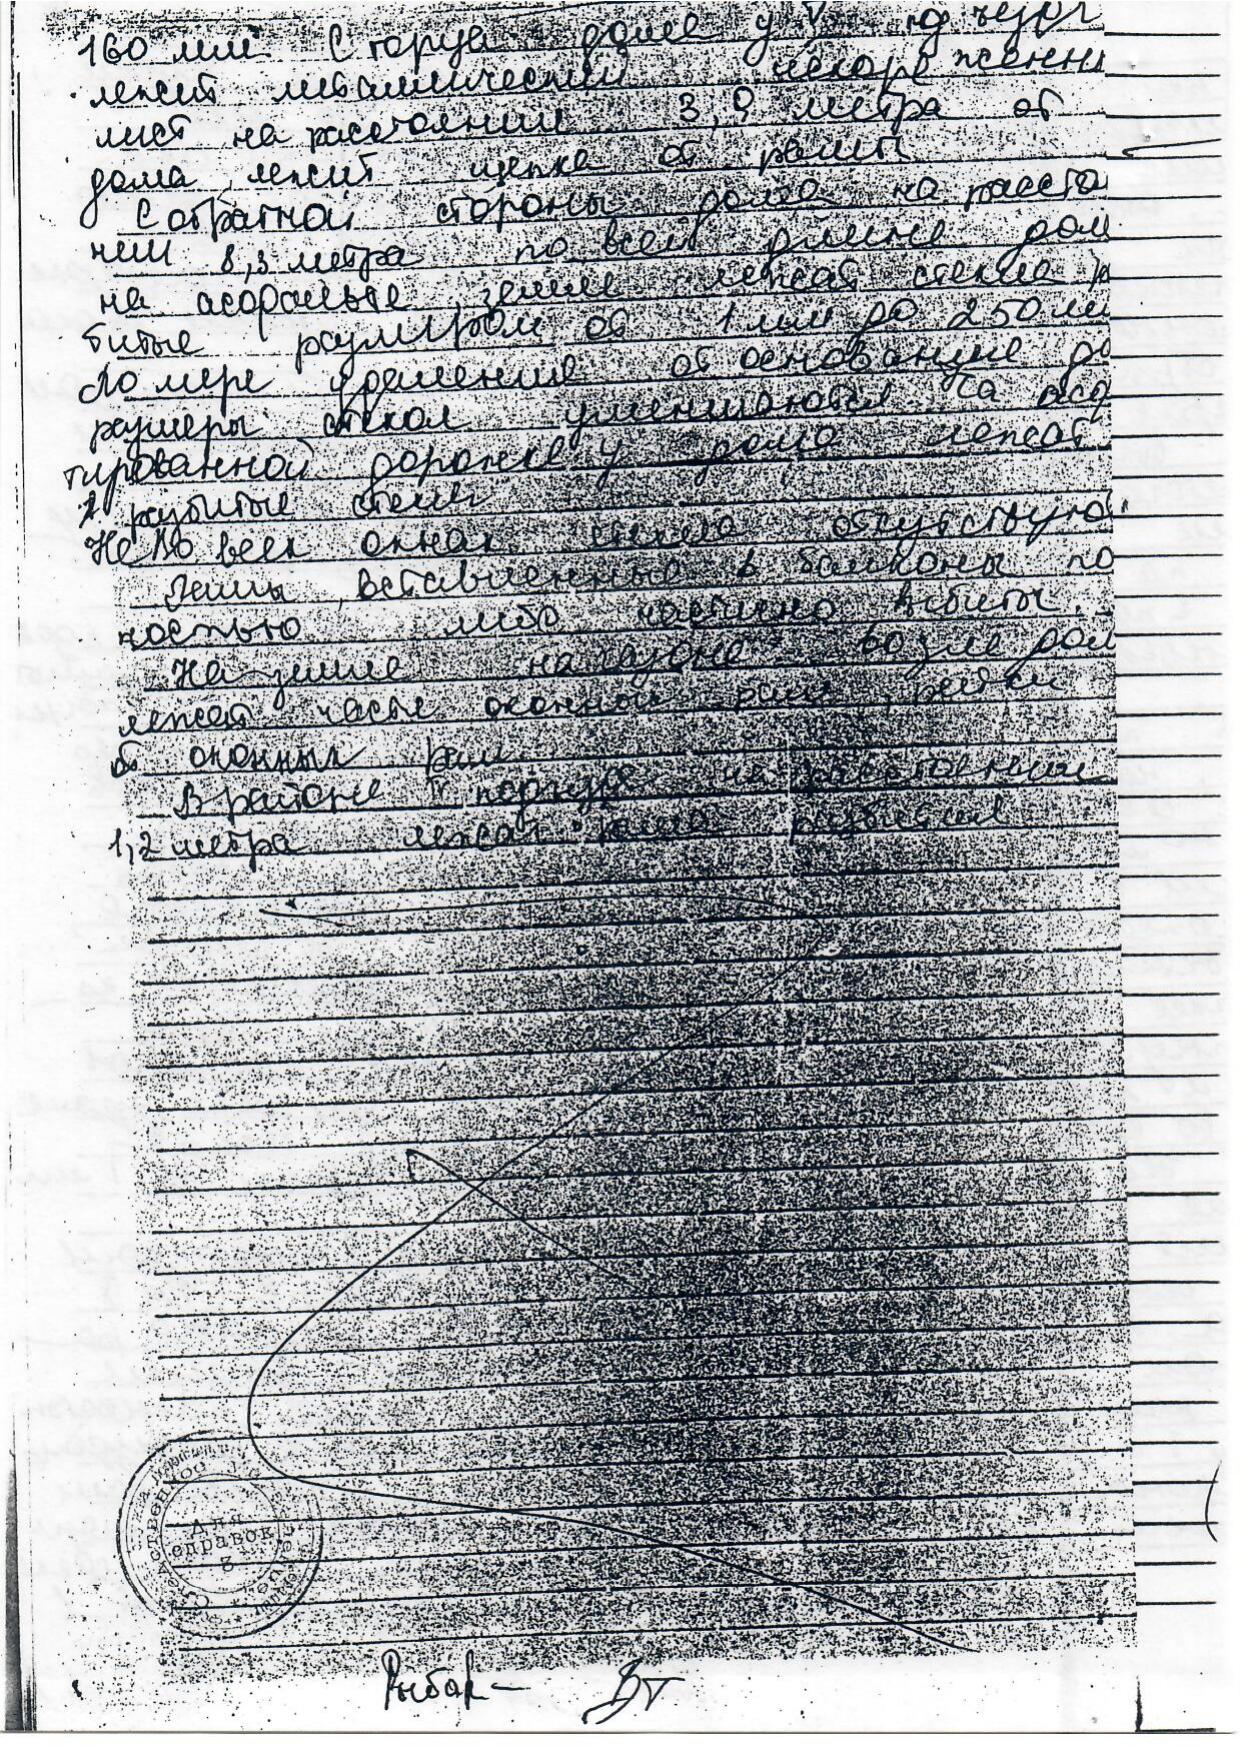 160 мм С торца дома у V подъезда
лежит металлический искорёженны
лист на расстоянии 3,9 метра от
дома лежит щепка от рамы
С обратной стороны дома на расстоя
нии 8,3 метра по всей длине дом
на асфальте, земле лежат стекла р
битые размером от 1 мм до 250 мм
По мере удаления от основания до
размеры стекол уменьшаются На асф
тированной дорожке у дома лежат
разбитые стекл
Не во всех окнах стекла отсутствуют.
Рамы, вставленные в балконы по
ностью либо частично выбиты.
На земле на газоне возле дом
лежат части оконной рамы, рейки
от оконных рам
В районе подъезда на расстоянии
1,2 метра лежат рама разбившая
Для
справок
3
Следственное
Рыбак